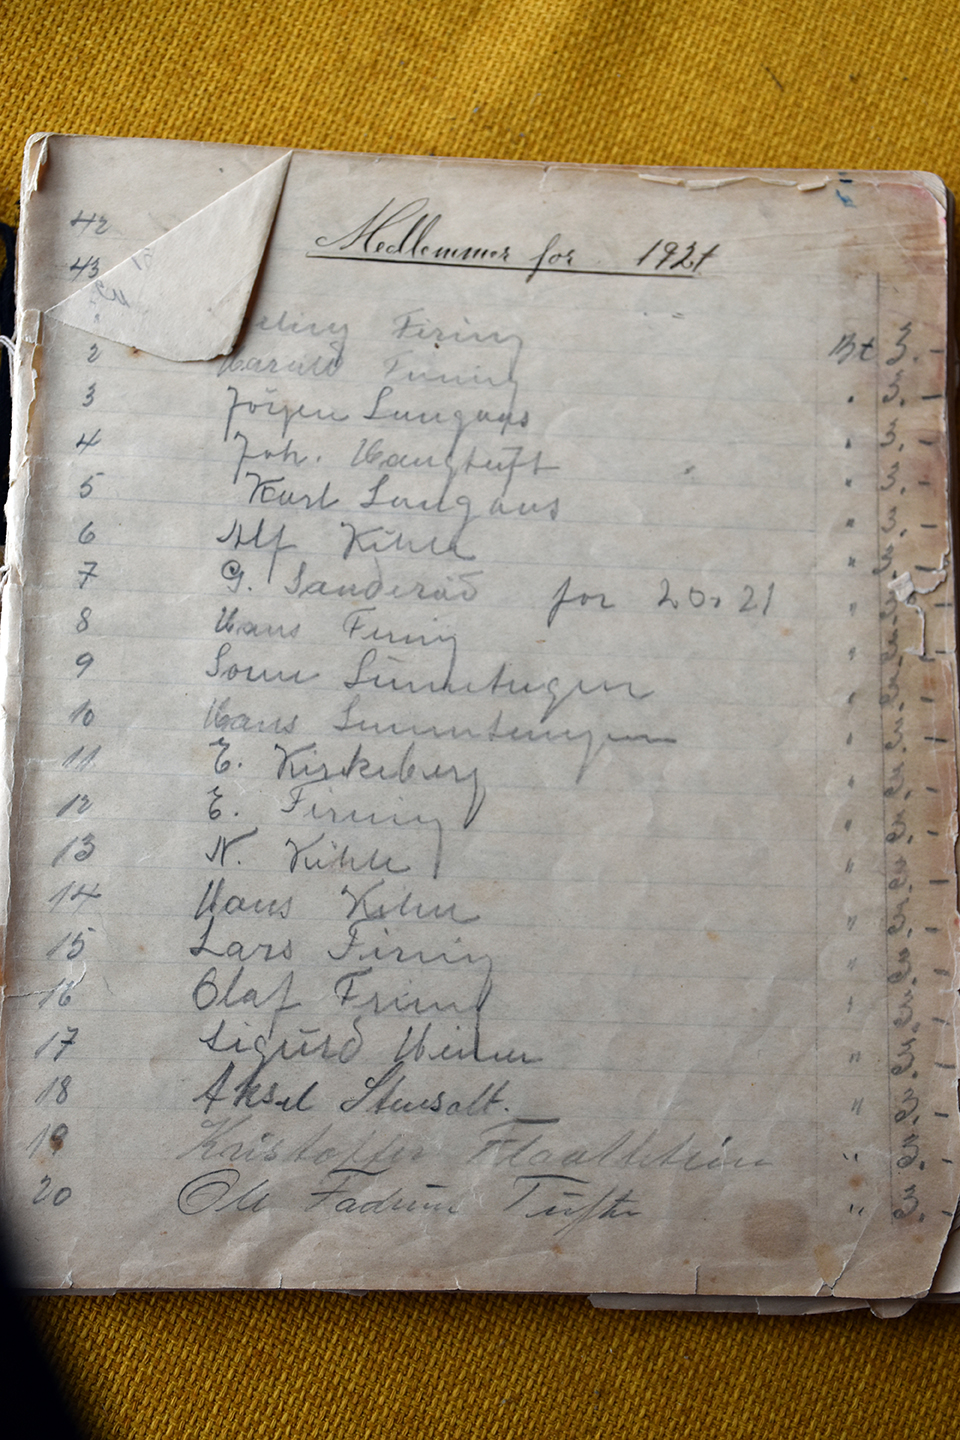 42
Medlemmer for 1921
43
Firing Bt 3. -
2 Harald Firing " 3. -
3 Jörgen Langaas " 3. -
4 Joh. Haugtuft " 3. -
5 Karl Langaas " 3. -
6 Alf Kihle " 3. -
7 G. Sanderud for 20 21 " 3. -
8 Hans Firing " 3. -
9 " 3. -
10 Hans " 3. -
11 E. Kirkeberg " 3. -
12 E. Firing " 3. -
13 N. Kihle " 3. -
14 Hans Kihle " 3. -
15 Lars Firing " 3. -
16 Olaf Firing " 3. -
17 Sigurd " 3. -
18 Aksel Stensolt. " 3. -
19 Kristoffer " 3. -
20 Ole Tufte " 3. -